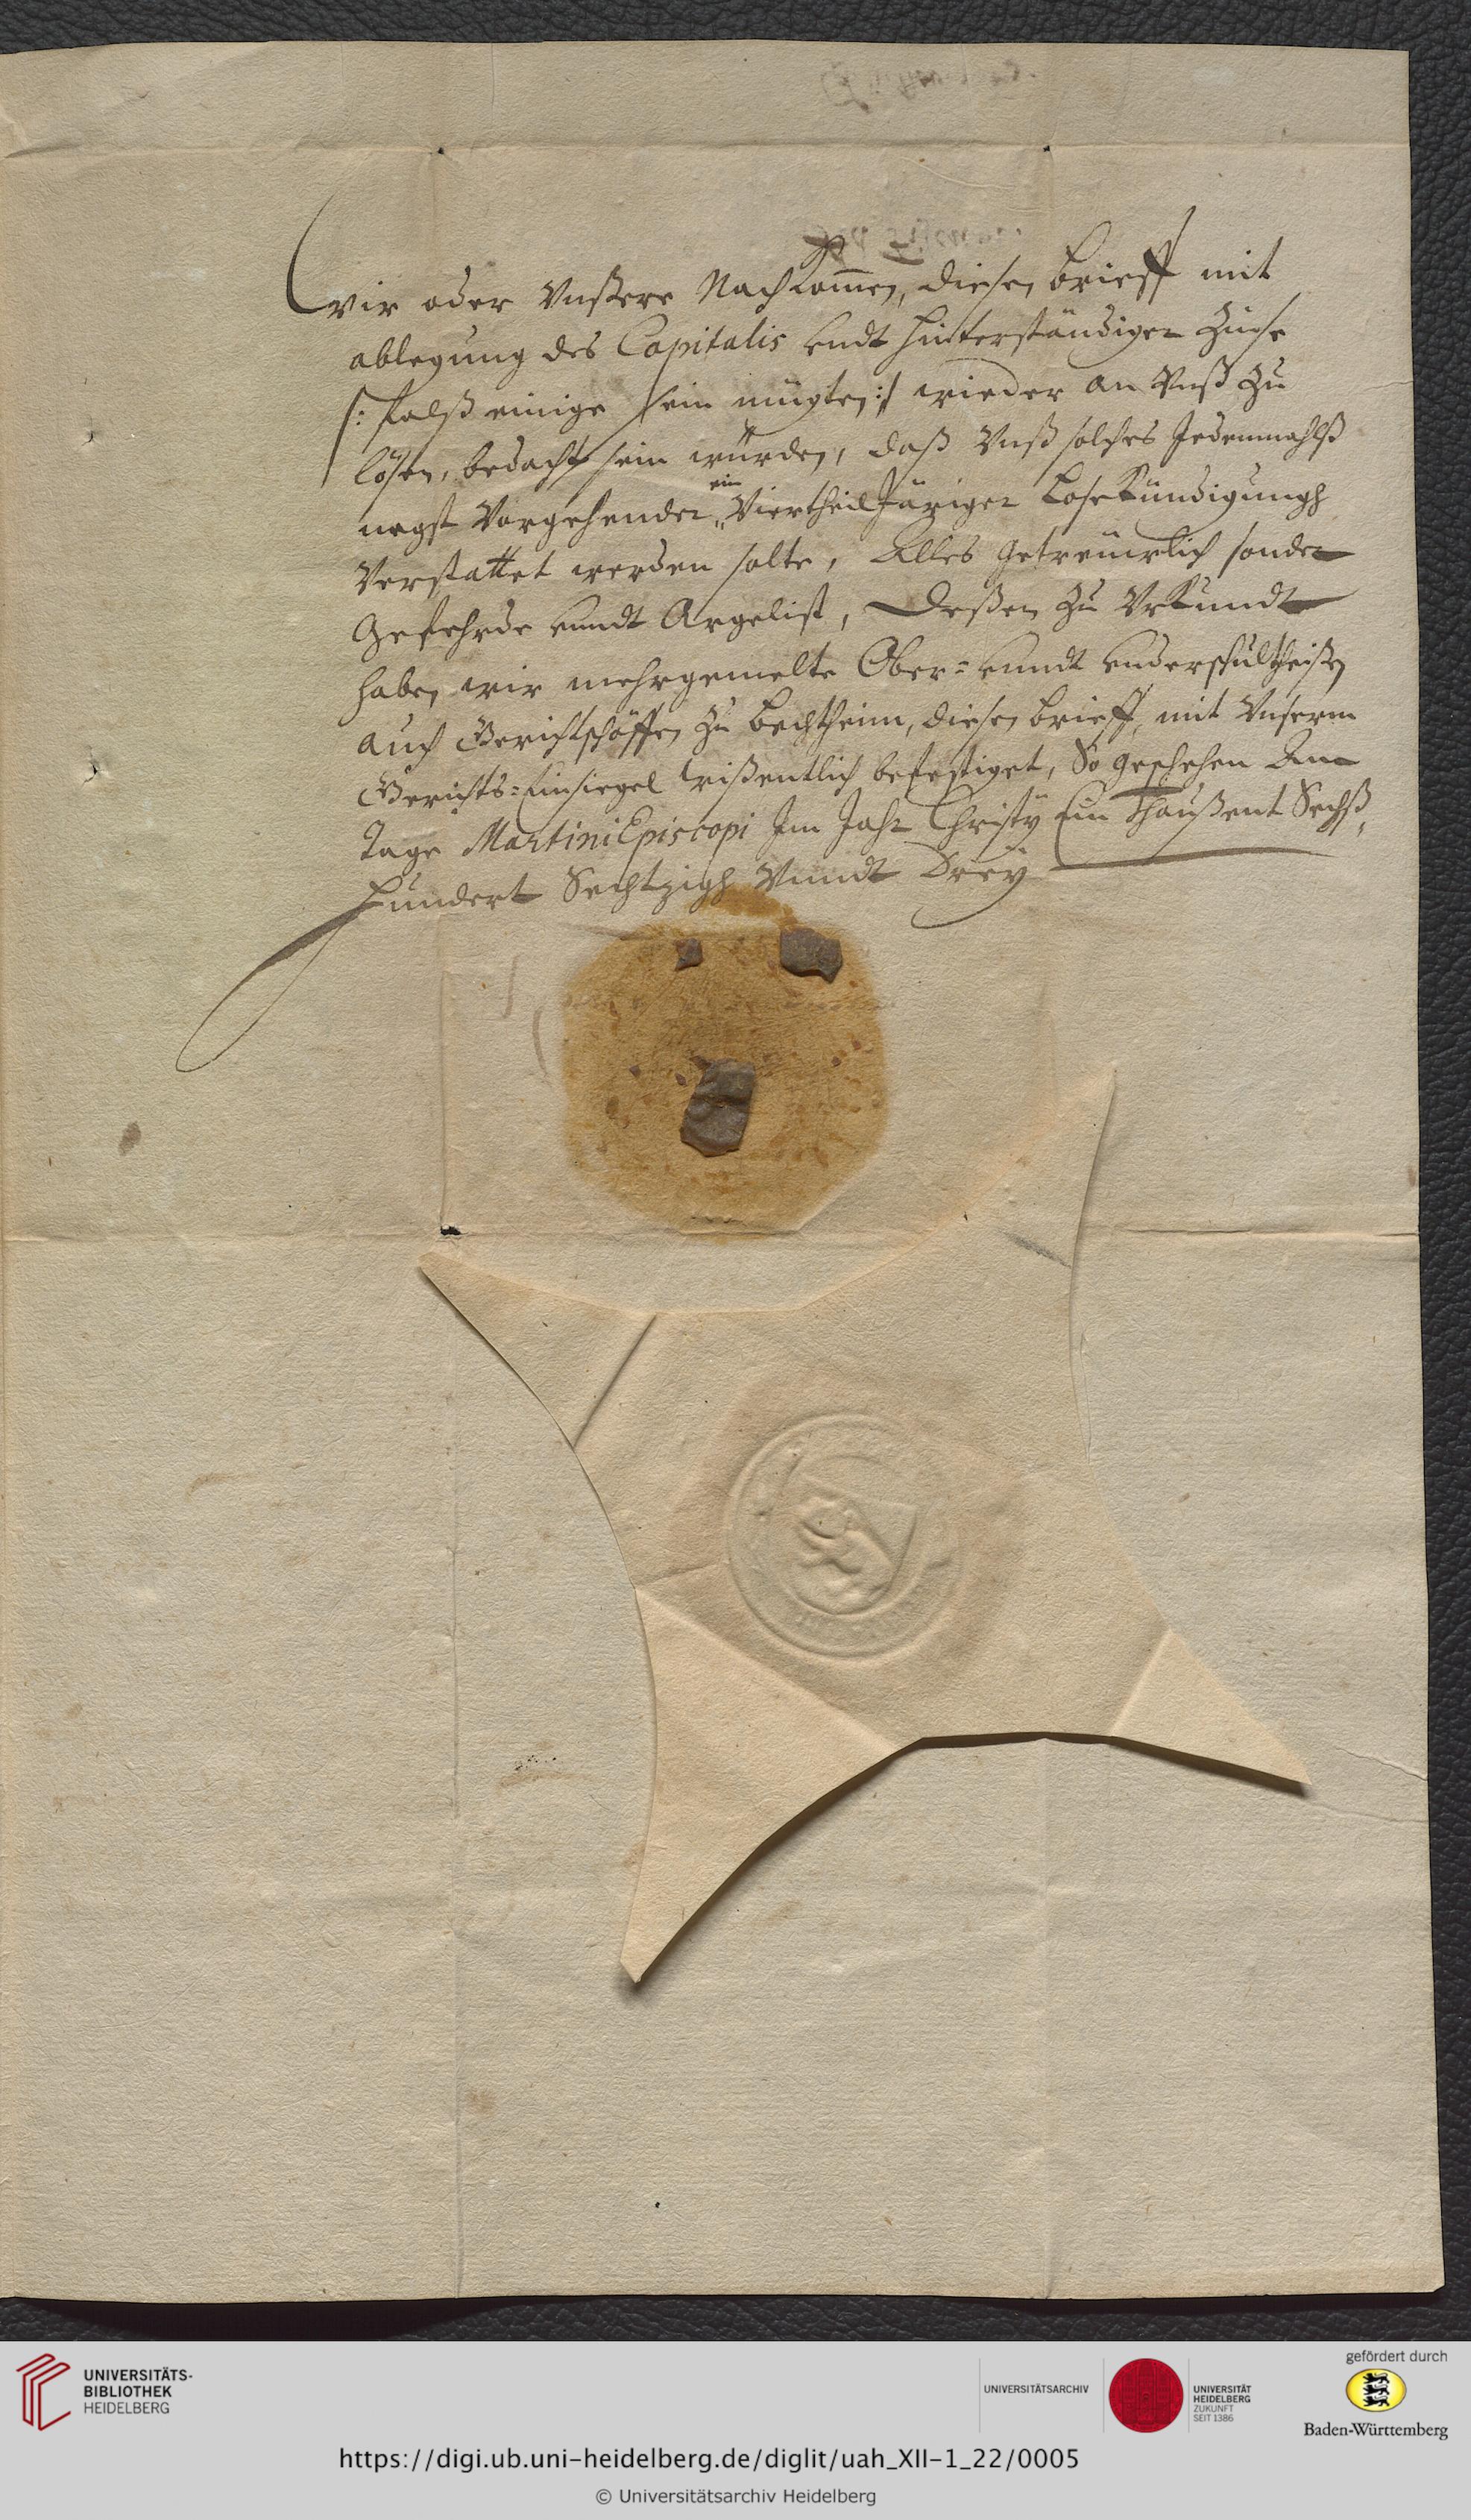 wir oder Vnßere Nachkom̄en, diesen brieff mit
ablegung des Capitalis undt hinterständiger Zinße
/: falß einige sein mögten :/ wieder an Vnß zu
lösen, bedacht sein würden, daß Vnß solches Jedenmahlß
negst Vorgehender ein Viertheiljäriger Losekündigungh
Verstattet werden solte, Alles getreuwlich sonder
Gefehrde unndt Argelist, Deßen zu Vrkundt
haben wir mehrgemelte Ober= unndt underschultheißen
auch Gerichtschöffen zu Bechtheim, diesen brieff, mit Vnserm
Gerichts=Einsiegel wißentlich befestiget, So geschehen Am
Tage Martini Episcopi Im Jahr Christÿ Ein Thaußent Sechß,
Hundert Sechtzigh Vnndt Dreÿ
UNIVERSITÄTS-
BIBLIOTHEK
HEIDELBERG
UNIVERSITÄTSARCHIV
UNIVERSITÄT
HEIDELBERG
ZUKUNFT
SEIT 1386
gefördert durch
Baden-Württemberg
https://digi.ub.uni-heidelberg.de/diglit/uah_XII-1_22/0005
© Universitätsarchiv Heidelberg